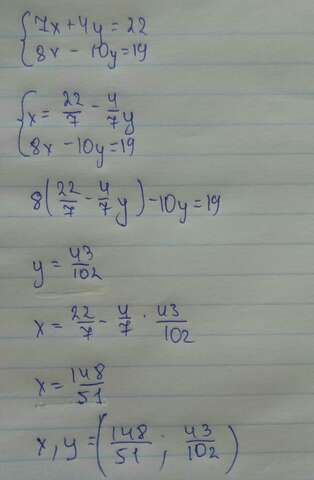 {7x+4y=22
{8x-10y=19
{x=22/7-4/7y
{8x-10y=19
8(22/7-4/7y)-10y=19
y=43/102
x=22/7-4/7·43/102
x=148/51
x,y=(148/51;43/102)